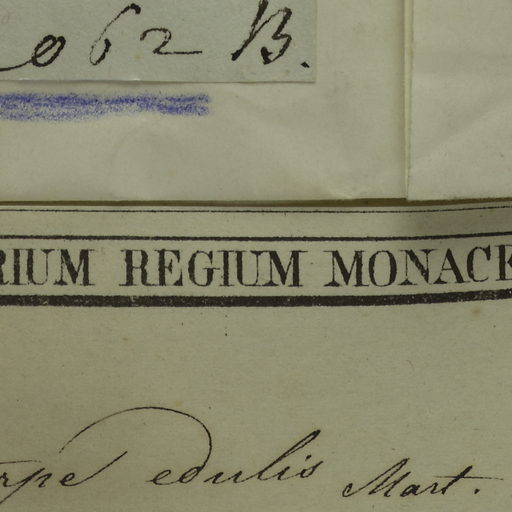 2062 B.
RIUM REGIUM MONACE
rpe edulis Mart.